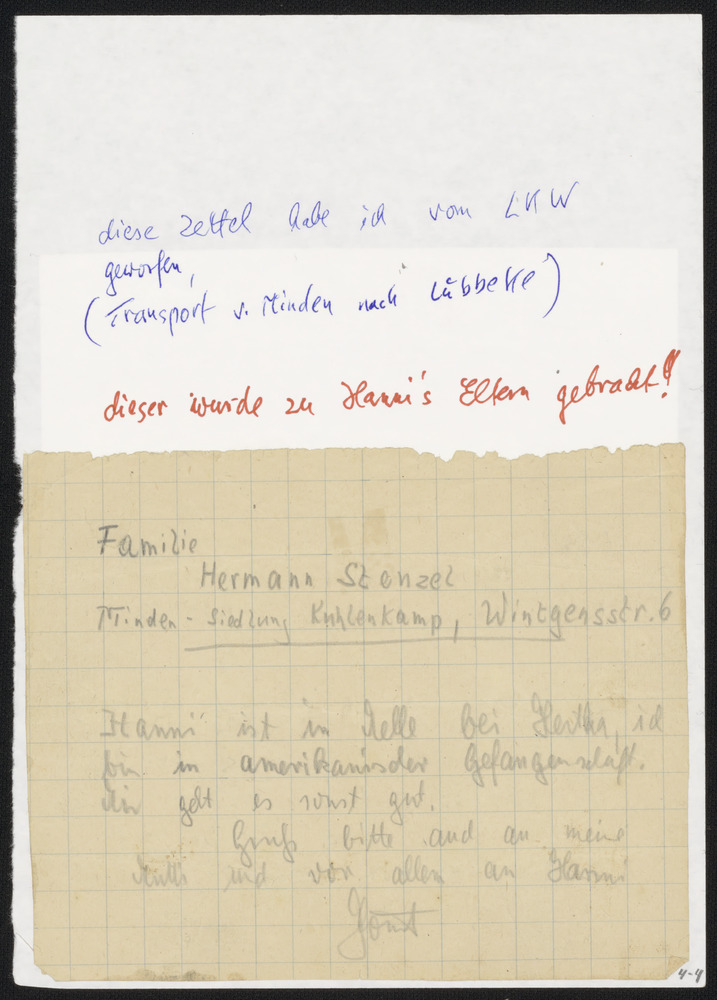 diese Zettel habe ich vom LKW
geworfen,
(Transport v. Minden nach Lübbecke)
dieser wurde zu Hanni's Eltern gebracht!
Familie
Hermann Stenzel
Minden - Siedlung Kuhlenkamp, Wintgensstr. 6
Hanni ist in Melle bei Hertha, ich
bin in amerikanischer Gefangenschaft.
Mir geht es sonst gut.
Gruß bitte auch an meine
Mutti und vor allem an Hanni
Horst
4-4